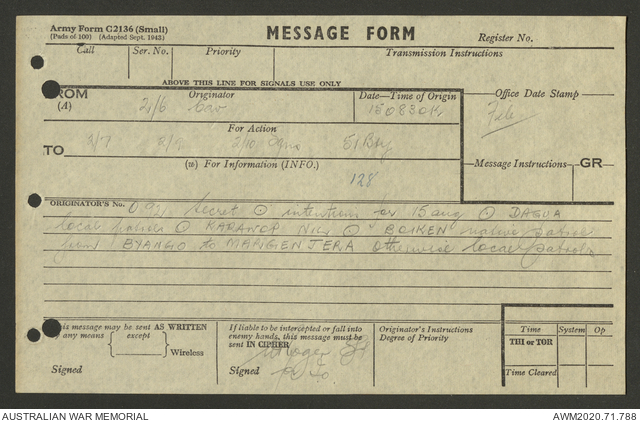 Army Form C2136 (Small)
(Pads of 100) (Adapted Sept. 1943)
MESSAGE FORM
Register No.
Call Ser. No. Priority Transmission Instructions
ABOVE THIS LINE FOR SIGNALS USE ONLY
FROM Originator Date—Time of Origin Office Date Stamp
(A) 2/6 Cav 150830K File
For Action
TO 2/7 2/10 51 Bty
(W) For Information (INFO.) Message Instructions GR
128
ORIGINATOR'S No. 092 Secret ⊙ intentions for 15 aug ⊙ DAGUA
local patrols ⊙ KARANOP NIL ⊙ BOIKEN native patrol
from BYANGO to MARGENJERA otherwise local patrols
This message may be sent AS WRITTEN
by any means except
Wireless
Signed
If liable to be intercepted or fall into
enemy hands, this message must be
sent IN CIPHER
Signed
Originator's Instructions
Degree of Priority
Time System Op
THI or TOR
Time Cleared
AUSTRALIAN WAR MEMORIAL AWM2020.71.788